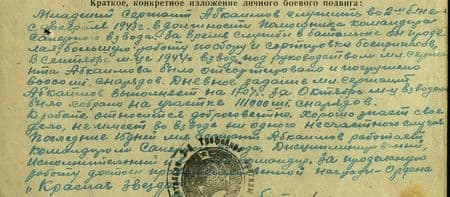 Краткое, конкретное изложение личного боевого подвига:
Младший Сержант Абкаимов служить во 2м б-не
с февраля 1943г. в должности Помощника Командира
взвода. За время службы в батальоне он проде
лал большую работу по сбору и сортировке боеприпасов,
В Сентябре м-це 1944г взвод под руководством мл. Сержа
нта Абкаимова было отсортировано и погружено
снарядов. Дневное задание мл. сержант
Абкаимов выполняет на 170%. За Октябрь м-ц взводом
было собрано на участке 111000 шт. снарядов.
К работе относиться добросовестно, хорошо знает свое
дело, не имеет во взводе ни одного несчастного случая
Последние время мл. сержант Абкаимов работает
Командиром взвода, Дисциплинированный,
Исполнительный командир, за проделанную
работу достоен награды - Ордена
"Красная Звезда